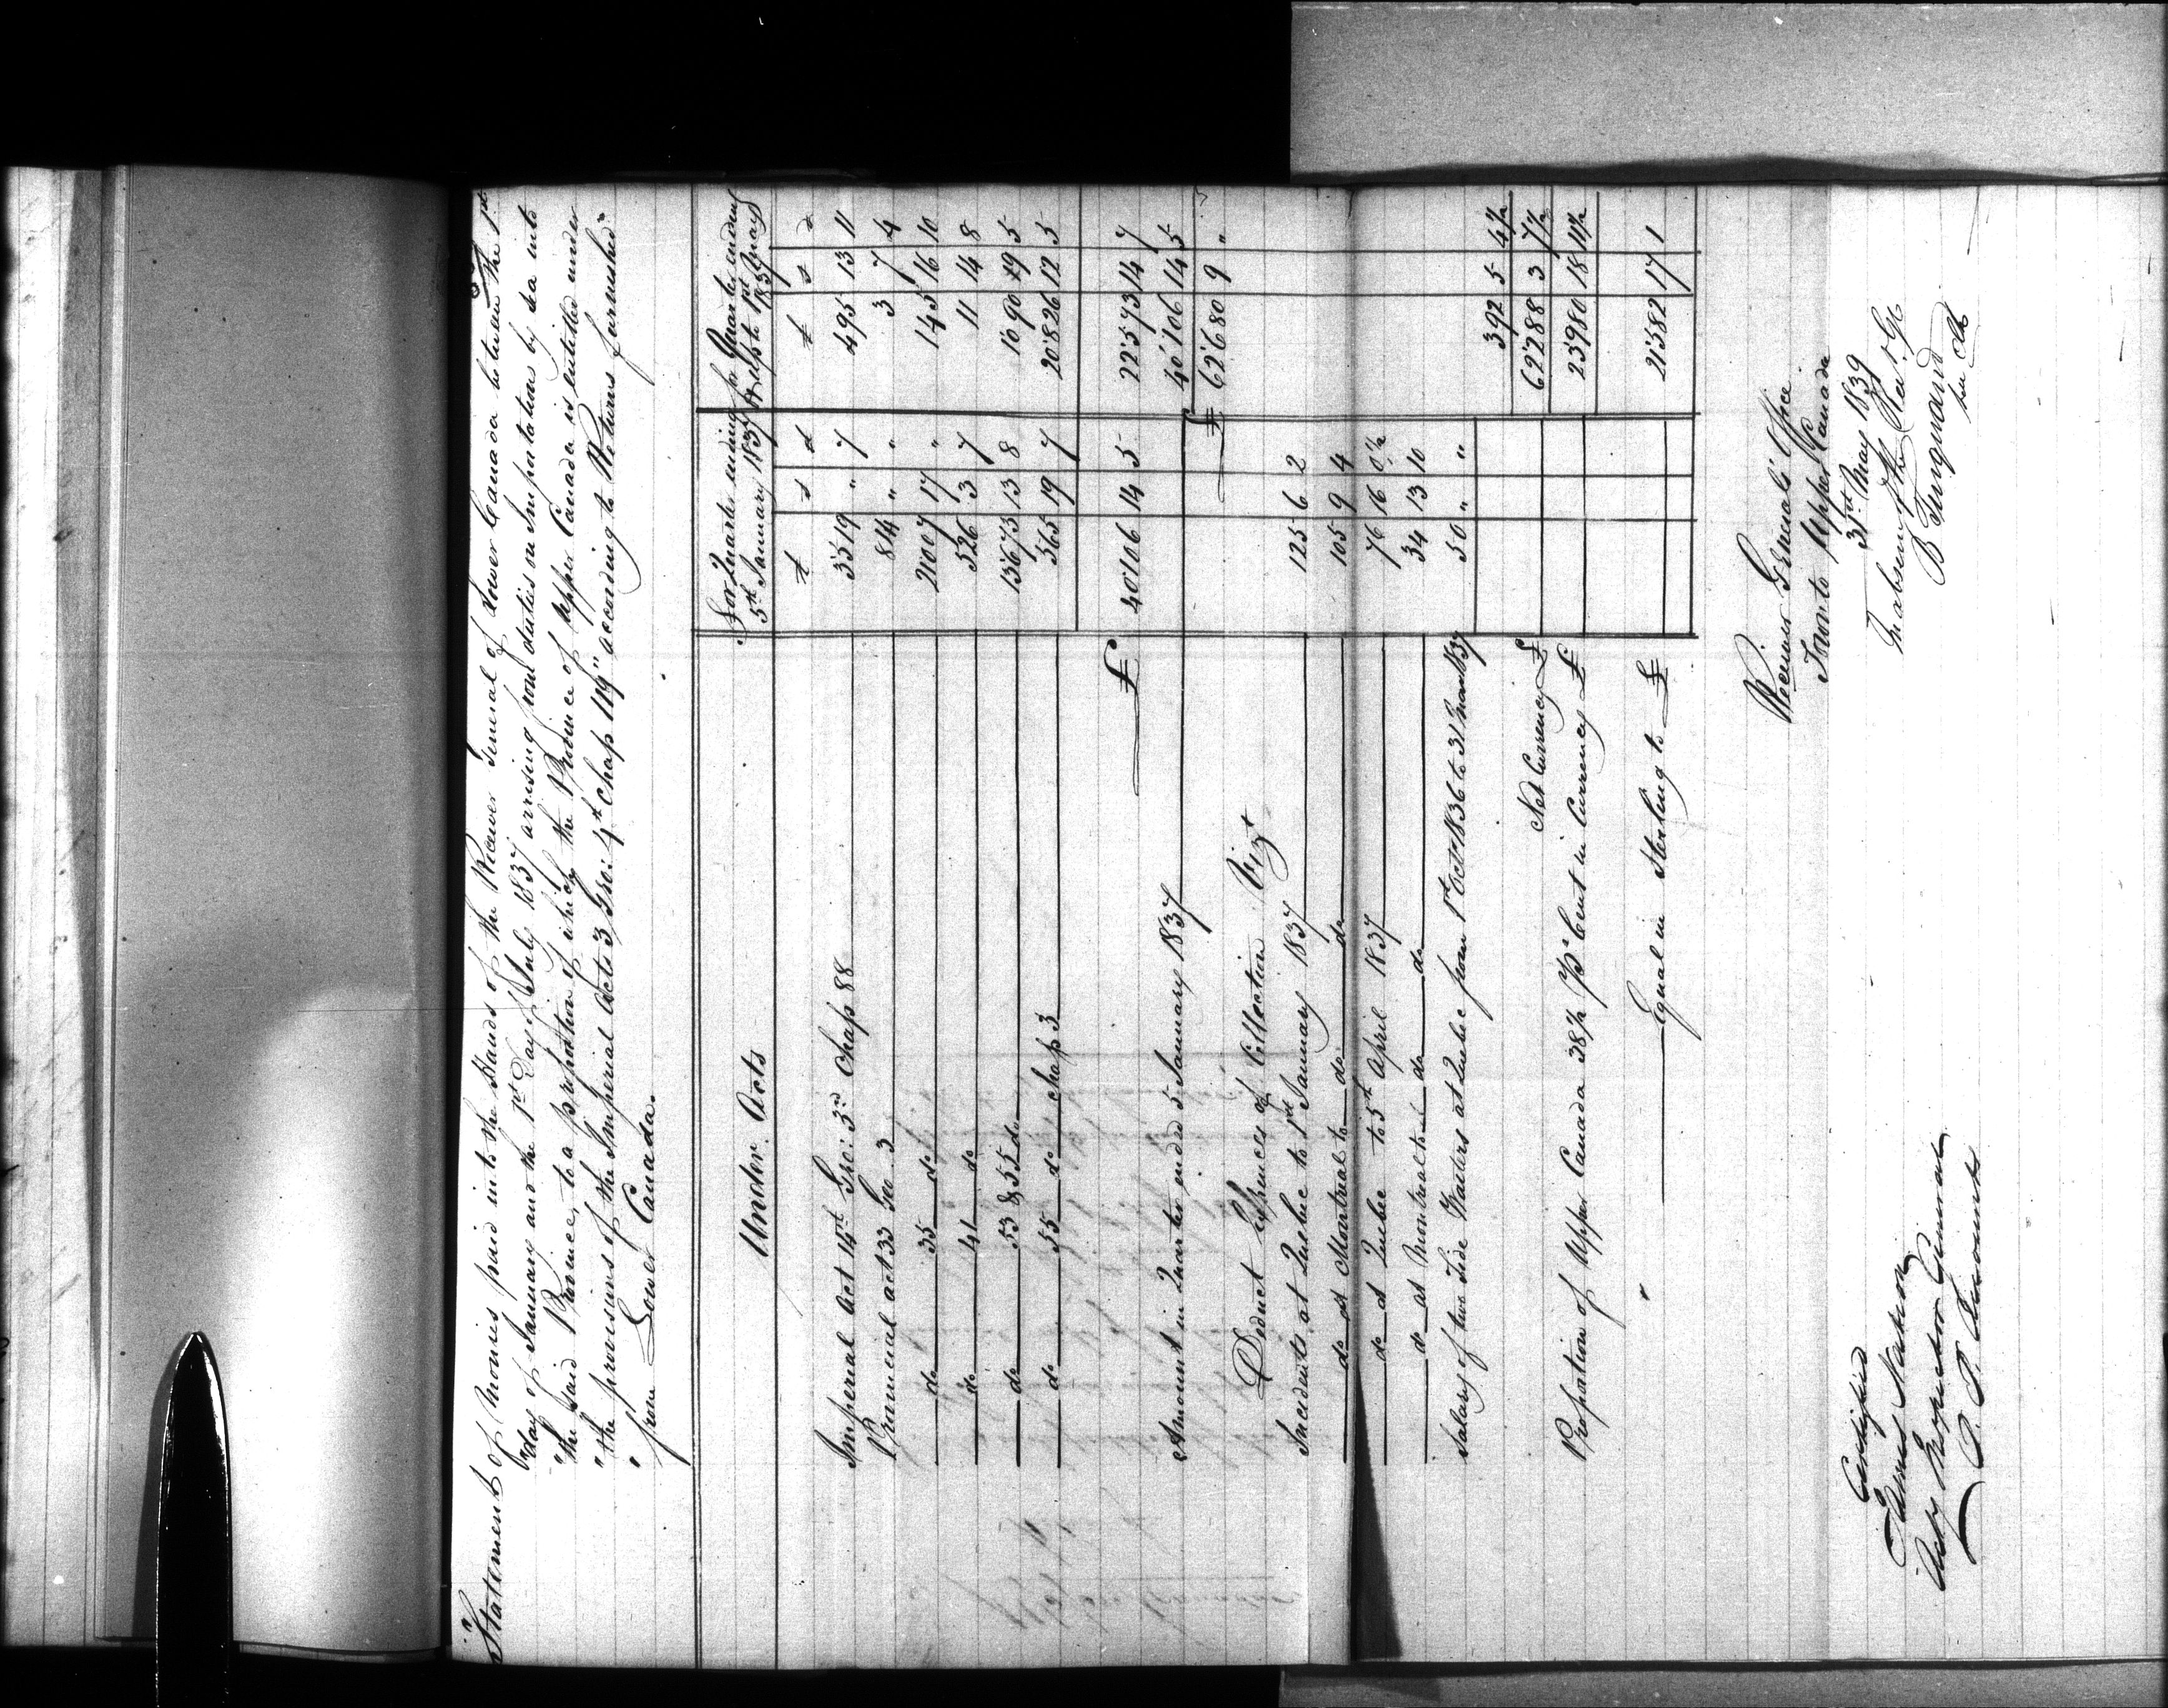 "Statement of Monies paid into the Hands of the Receiver General of Lower Canada between the 1st
"day of January and the 1st day of July 1837 arising from duties on Importation by Sea into
"the said Province, to a proportion of which the Province of Upper Canada is entitled under
"the provisions of the Imperial Acts 3 Geo: 4th Chap 119" according to Returns furnished
" from Lower Canada.
Under Acts For Quarter ending 5th January 1837 For Quarter ending 1837
£ s d £ s d
Imperial Act 14th Geo: 3rd Chap 88 3519 " 7 495 13 11
Provincial act 33 Geo 3 814 " " 3 7 4
do 35 do 21007 17 " 145 16 10
do 41 do 526 3 7 11 14 8
do 53 & 55 do 13673 13 8 1090 19 5
do 55 do chap 3 565 19 7 20826 12 5
£ 40106 14 5 22573 14 7
Amount in Quarter ended 5 January 1837 40106 14 5
£ 62680 9 "
Deduct Expences of Collection Vizt
Incidents at Quebec to 1st January 1837 125 6 2
do at Montreal to do do 105 9 4
do at Quebec to 5th April 1837 76 16 0½
do at Montreal to do do 34 13 10
Salary of two Tide Waiters at Quebec from 1st Octr 1836 to 31 Mar 1837 50 " "
392 5 4½
Net Currency £ 62288 3 7½
Proportion of Upper Canada 38½ P Cent in Currency £ 23980 18 10½
Equal in Sterling to £ 21582 17 1
Receiver Generals Office
Toronto Upper Canada
31st May 1839
In absence of the Recr Gl
B Turquand
Certified
James Nation
Inspector General
P. Accounts